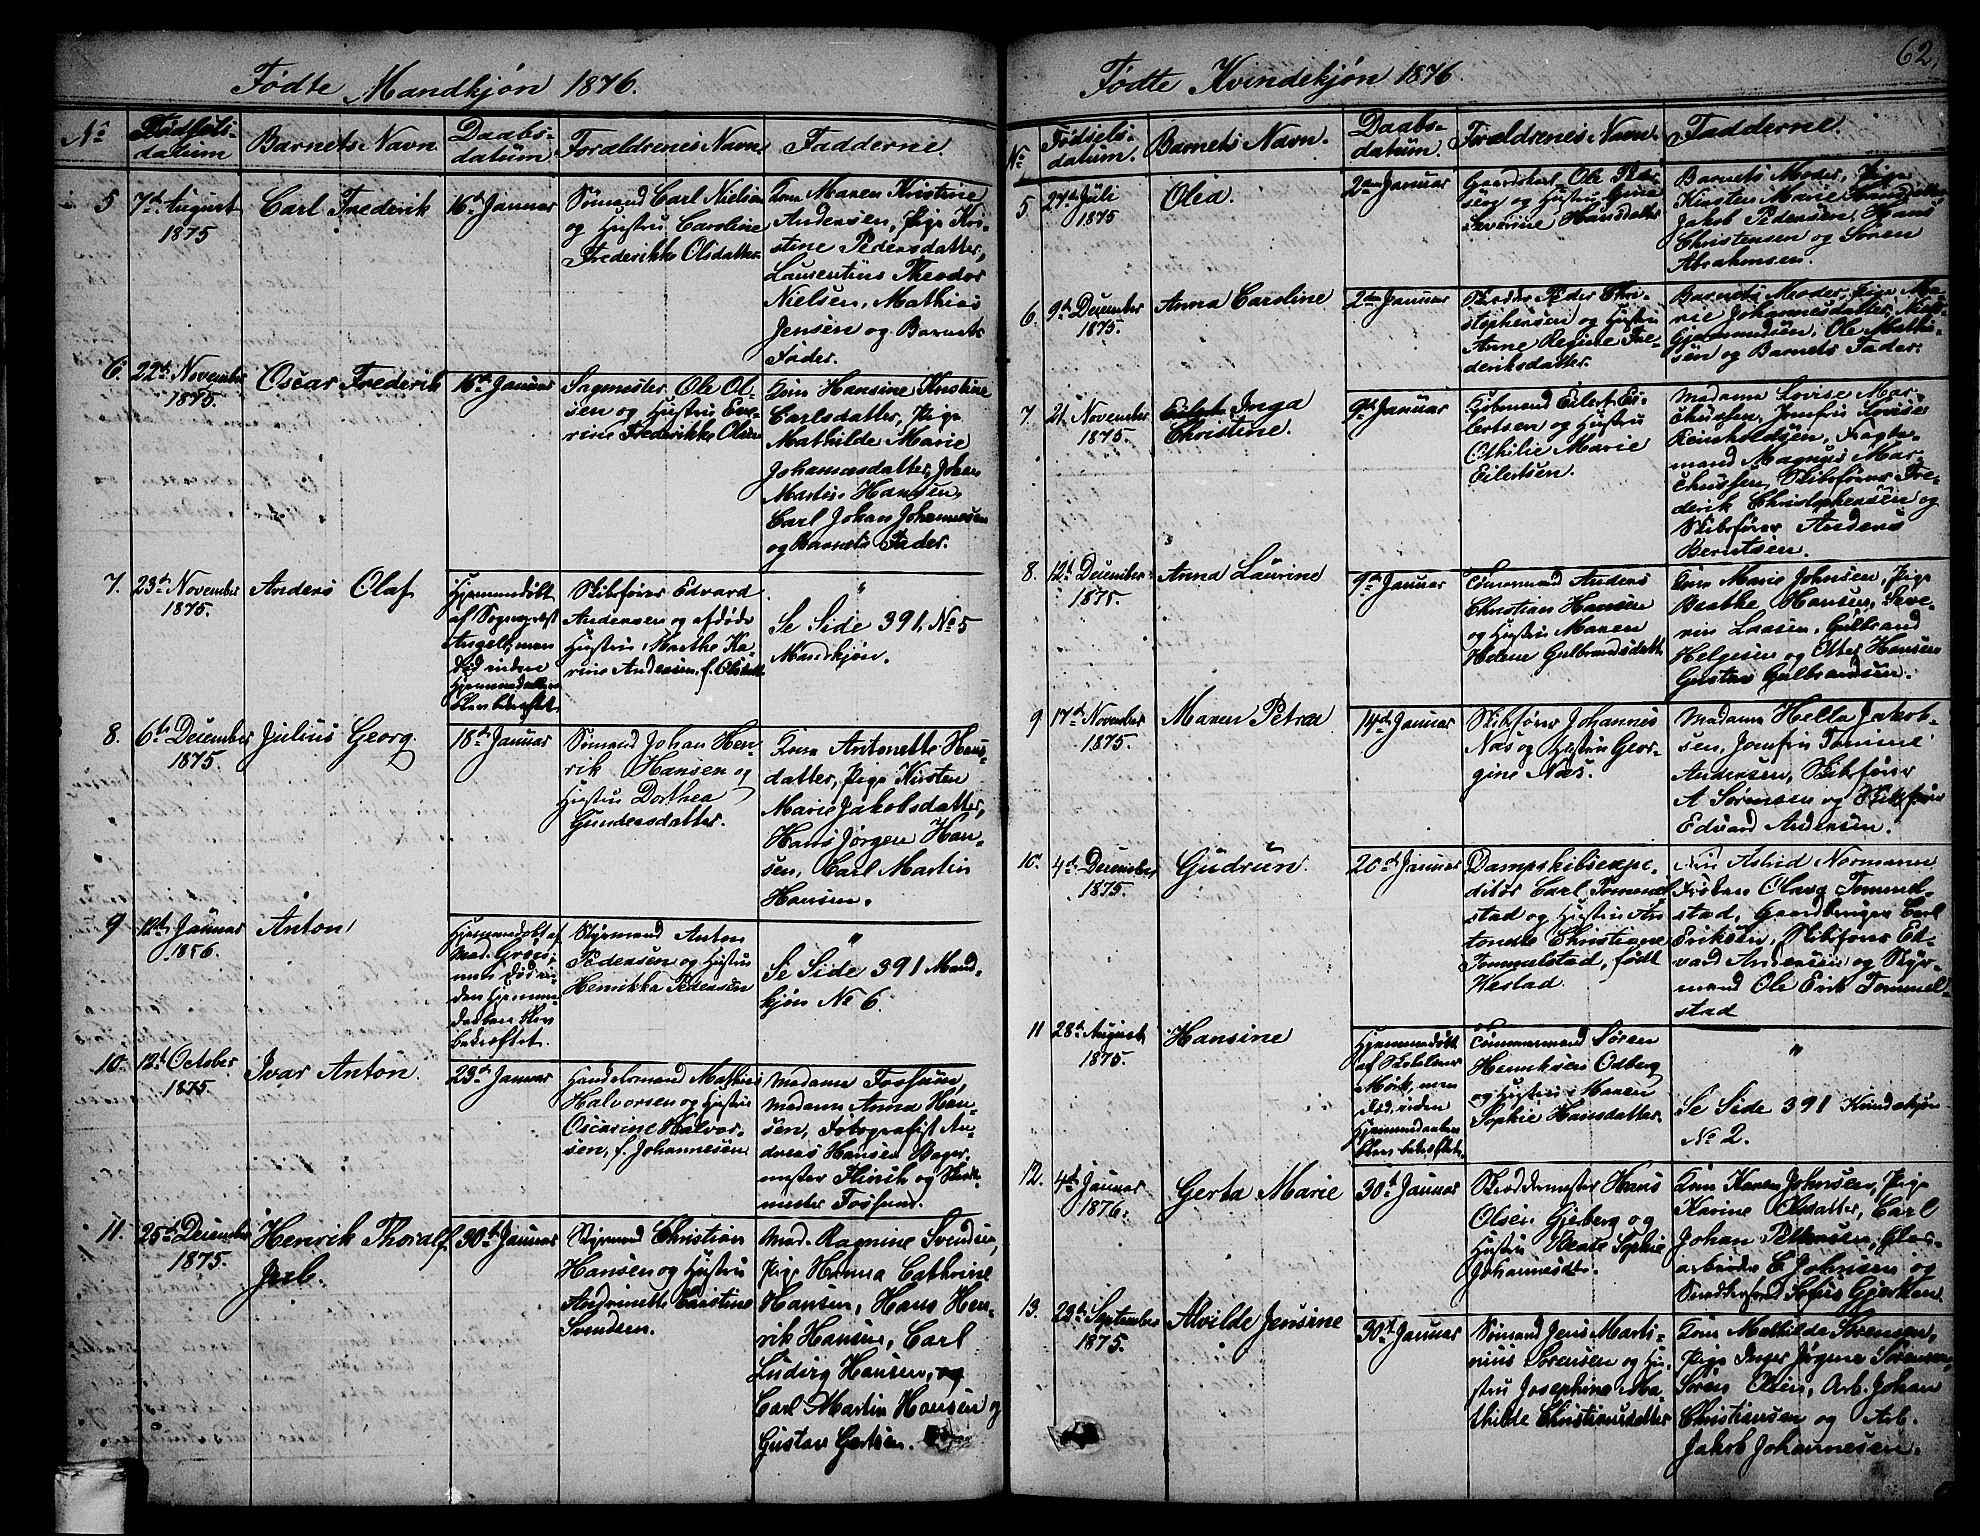 62.
Fødte Mandkjøn 1876.
No
Fødsels-
datum
Barnets Navn
Daabs-
datum
Forældrenes Navn
Fadderne.
5
7de August
1875
Carl Frederik
16de Januar
Sømand Carl Nielsen
og Hustru Caroline
Frederikke Olsdatter
Kone Maren Kristine
Andersen, Pige Kri-
stine Pedersdatter,
Laurentius Theodor
Nielsen, Mathias
Jensen og Barnets
Fader.
6.
22de November
1875.
Oscar Frederik
16de Januar
Sagmester Ole Ol-
sen og Hustru Eve-
rine Frederikke Olsen
Kone Hansine Kristine
Carlsdatter, Pige
Mathilde Marie
Johannesdatter, Johan
Martin Hansen,
Carl Johan Johannesen
og Barnets Fader.
7.
23de November
1875.
Anders Olaf
Hjemmedøbt
af Sognepræst
Angell, men
død inden
Hjemmedaaben
blev bekræftet.
Skibsfører Edvard
Andersen og afdøde
Hustru Marthe Ka-
rine Andersen, f. Olsdatt.
"
Se Side 391, No 5
Mandkjøn.
8.
6te December
1875.
Julius Georg.
18de Januar
Sømand Johan Hen-
rik Hansen og
Hustru Dorthea
Gundersdatter.
Kone Antonette Hans-
datter, Pige Kirsten
Marie Jakobsdatter,
Hans Jørgen Han-
sen, Carl Martin
Hansen.
9
12te Januar
1856.
Anton
Hjemmedøbt af
Mad. Grøn,
men død in-
den Hjemme-
daaben blev
bekræftet.
Styrmand Anton
Pedersen og Hustru
Henrikka Pedersen
"
Se Side 391 Mand-
kjøn No 6.
10.
12te October
1875.
Ivar Anton.
23de Januar
Handelsmand Mathias
Halvorsen og Hustru
Oscarine Halvor-
sen, f. Johannesen
Madame Fossum,
Madame Anna Han-
sen, Fotografist An-
dreas Hansen Bager-
mester Hinsch og
mester Fossum.
11.
25de December
1875.
Henrik Thoralf
Jarl.
30te Januar
Styrmand Christian
Hansen og Hustru
Andrinette Christine
Svendsen.
Mad. Ragnine Svendsen,
Pige Hanna Cathrine
Hansen, Hans Hen-
rik Hansen, Carl
Ludvig Hansen, og
Carl Martin Hansen og
Gustav Gertsen.
Fødte Kvindekjøn 1876.
No
Fødsels-
datum.
Barnets Navn.
Daabs-
datum.
Forældrenes Navn.
Fadderne.
5
27de Juli
1875
Olea.
2den Januar
Gaardskarl Ole Peder-
sen og Hustru Gine
Severine Hansdatter
Barnets Moder, Pige
Kirsten Marie
Jakob Pedersen, Hans
Christensen og Søren
Abrahamsen.
6.
9de December
1875.
Anna Caroline
2den Januar
Peder Chri-
stophersen og Hustru
Anne Regine Fre-
deriksdatter.
Barnets Moder, Pige Ma-
rie Johannesdatter,
Gjemmundsen, Ole Mathi-
sen og Barnets Fader.
7.
21. November
1875.
Eilert Inga
Christine.
9de Januar
Kjøbmand Eilert Ei-
lertsen og Hustru
Othilie Marie
Eilertsen.
Madame Lovise Mar-
chussen, Jomfru Lovise
Reinholdsen, Fragte-
mand Magnus Mar-
chussen, Skibsfører Fre-
derik Christophersen og
Skibsfører Anders
Berntsen.
8.
12te December
1875.
Anna Laurine
9de Januar
Tømmermand Anders
Christian Hansen
og Hustru Maren
Helene Gulbrandsdatt.
Kone Marie Johnsen, Pige
Beathe Hansen, Seve-
rin Laasen, Gulbrand
Helgesen og Otter Hansen
Gustav Gulbrandsen.
9
17de November
1875.
Maren Petra
14de Januar
Skibsfører Johannes
Næs og Hustru Geor-
gine Næs.
Madame Hella Jakob-
sen, Jomfru Tomine
Andersen, Skibsfører
A Sørensen og Skibsfører
Edvard Andersen.
10.
4de December
1875.
Gudrun.
20de Januar
Dampskibsexpe-
ditør Carl Tommel-
stad og Hustru An-
tonette Christiane
Tommelstad, født
Westad
Astrid Normann
Frøken Olava Tommel-
stad, Gaardbruger Carl
Eriksen, Skibsfører Ed-
vard Andersen og Styr-
mand Ole Erik Tommel-
stad
11
28de August
1875.
Hansine
Hjemmedøbt
af Skolelærer
Mørk, men
død, inden
Hjemmedaaben
blev bekræftet.
Tømmermand Søren
Henriksen Odberg
og Hustru Maren
Sophie Hansdatter.
"
Se Side 391 Kvindekjøn
No 2.
12.
4de Januar
1876.
Gerta Marie
30te Januar
Skræddermester Hans
Olsen Gjeberg og
Hustru Beate Sophie
Johannesdt.
Kone Karen Johnsen, Pige
Karine Olsdatter, Carl
Johan Pettersen, Glas-
arbeider C Johnsen og
Sofus Gjertsen.
13.
23de September
1875.
Alvilde Jensine
30te Januar
Sømand Jens Marti-
nius Sørensen og Hu-
stru Josephine Ma-
thilde Christiansdatter
Kone Mathilde Sørensen,
Pige Inger Jørgine Sørensen
Søren Olsen, Arb. Johan
Christiansen og Arb.
Jakob Johannesen.